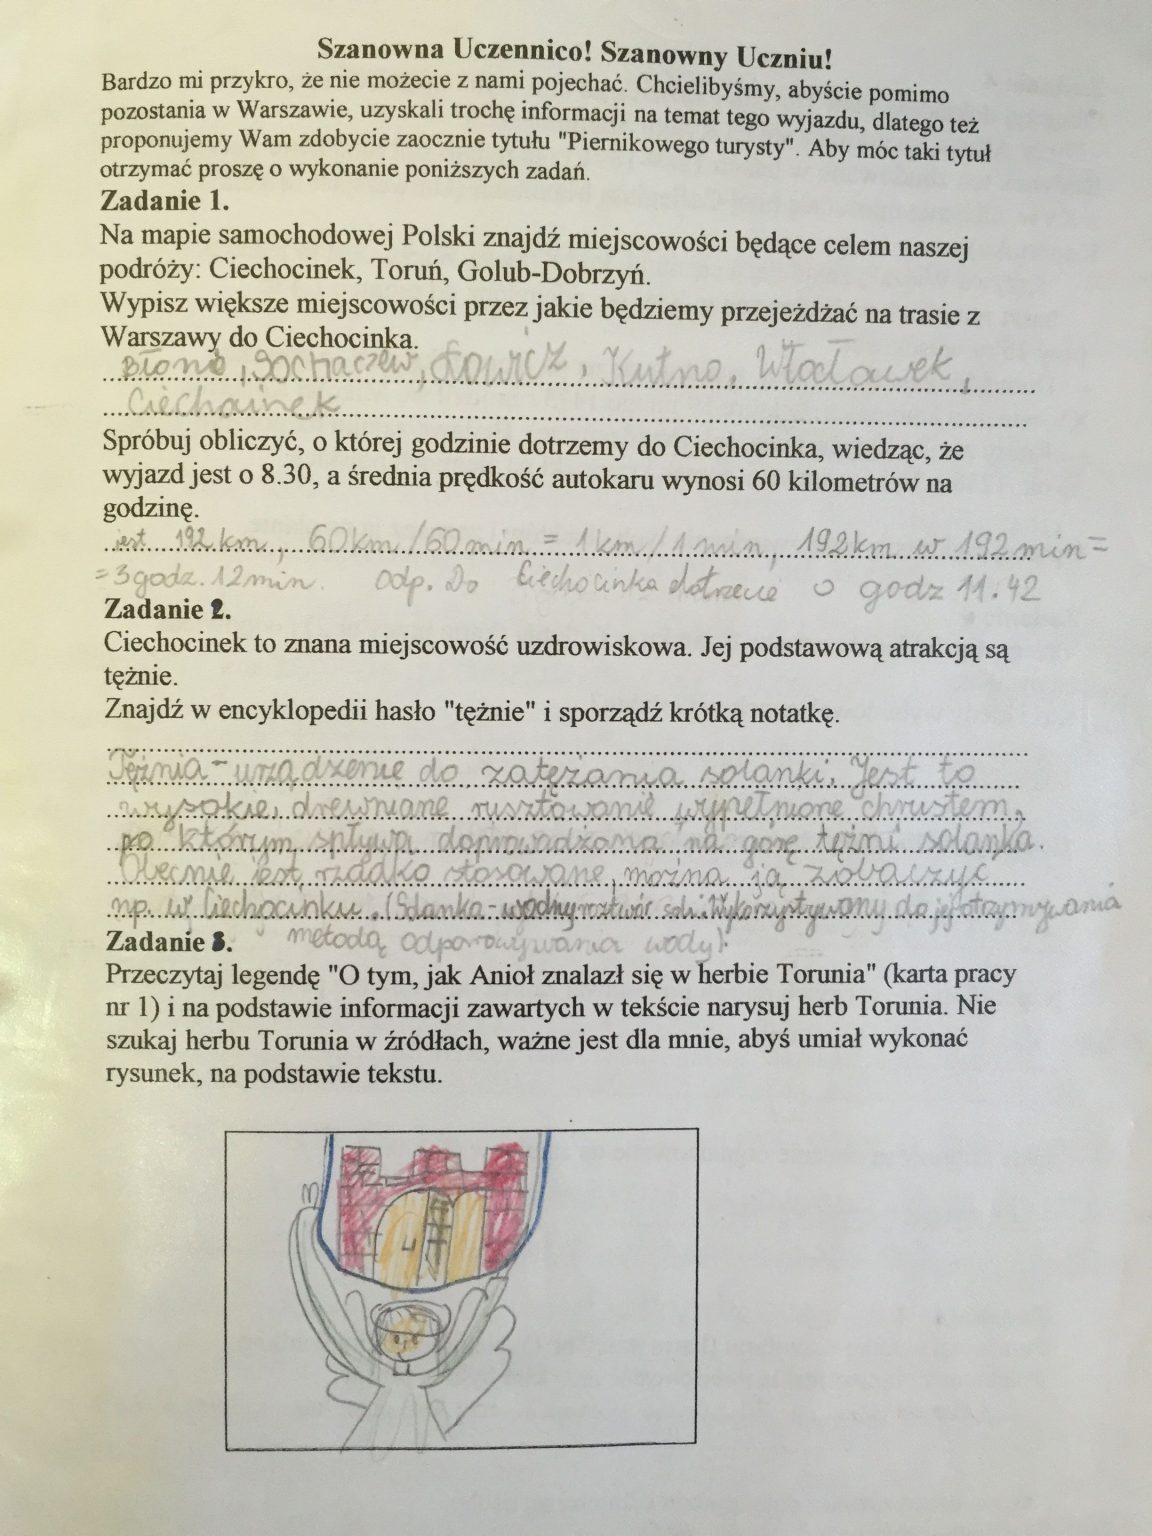 Szanowna Uczennico! Szanowny Uczniu!
Bardzo mi przykro, że nie możecie z nami pojechać. Chcielibyśmy, abyście pomimo
pozostania w Warszawie, uzyskali trochę informacji na temat tego wyjazdu, dlatego też
proponujemy Wam zdobycie zaocznie tytułu "Piernikowego turysty". Aby móc taki tytuł
otrzymać proszę o wykonanie poniższych zadań.
Zadanie 1.
Na mapie samochodowej Polski znajdź miejscowości będące celem naszej
podróży: Ciechocinek, Toruń, Golub-Dobrzyń.
Wypisz większe miejscowości przez jakie będziemy przejeżdżać na trasie z
Warszawy do Ciechocinka.
Błonie, Sochaczew, Łowicz, Kutno, Włocławek,
Ciechocinek
Spróbuj obliczyć, o której godzinie dotrzemy do Ciechocinka, wiedząc, że
wyjazd jest o 8.30, a średnia prędkość autokaru wynosi 60 kilometrów na
godzinę.
jest 192 km, 60 km/60 min = 1 km/1 min, 192 km w 192 min =
= 3 godz. 12 min. odp. Do Ciechocinka dotrzecie o godz 11.42
Zadanie 2.
Ciechocinek to znana miejscowość uzdrowiskowa. Jej podstawową atrakcją są
tężnie.
Znajdź w encyklopedii hasło "tężnie" i sporządź krótką notatkę.
Tężnia - urządzenie do zatężania solanki. Jest to
wysokie, drewniane rusztowanie wypełnione chrustem,
po którym spływa doprowadzona na górę tężni solanka.
Obecnie jest rzadko stosowane, można ją zobaczyć
np. w Ciechocinku. (Solanka - wodny roztwór soli. Wykorzystywany do jej otrzymywania
metodą odparowywania wody).
Zadanie 3.
Przeczytaj legendę "O tym, jak Anioł znalazł się w herbie Torunia" (karta pracy
nr 1) i na podstawie informacji zawartych w tekście narysuj herb Torunia. Nie
szukaj herbu Torunia w źródłach, ważne jest dla mnie, abyś umiał wykonać
rysunek, na podstawie tekstu.